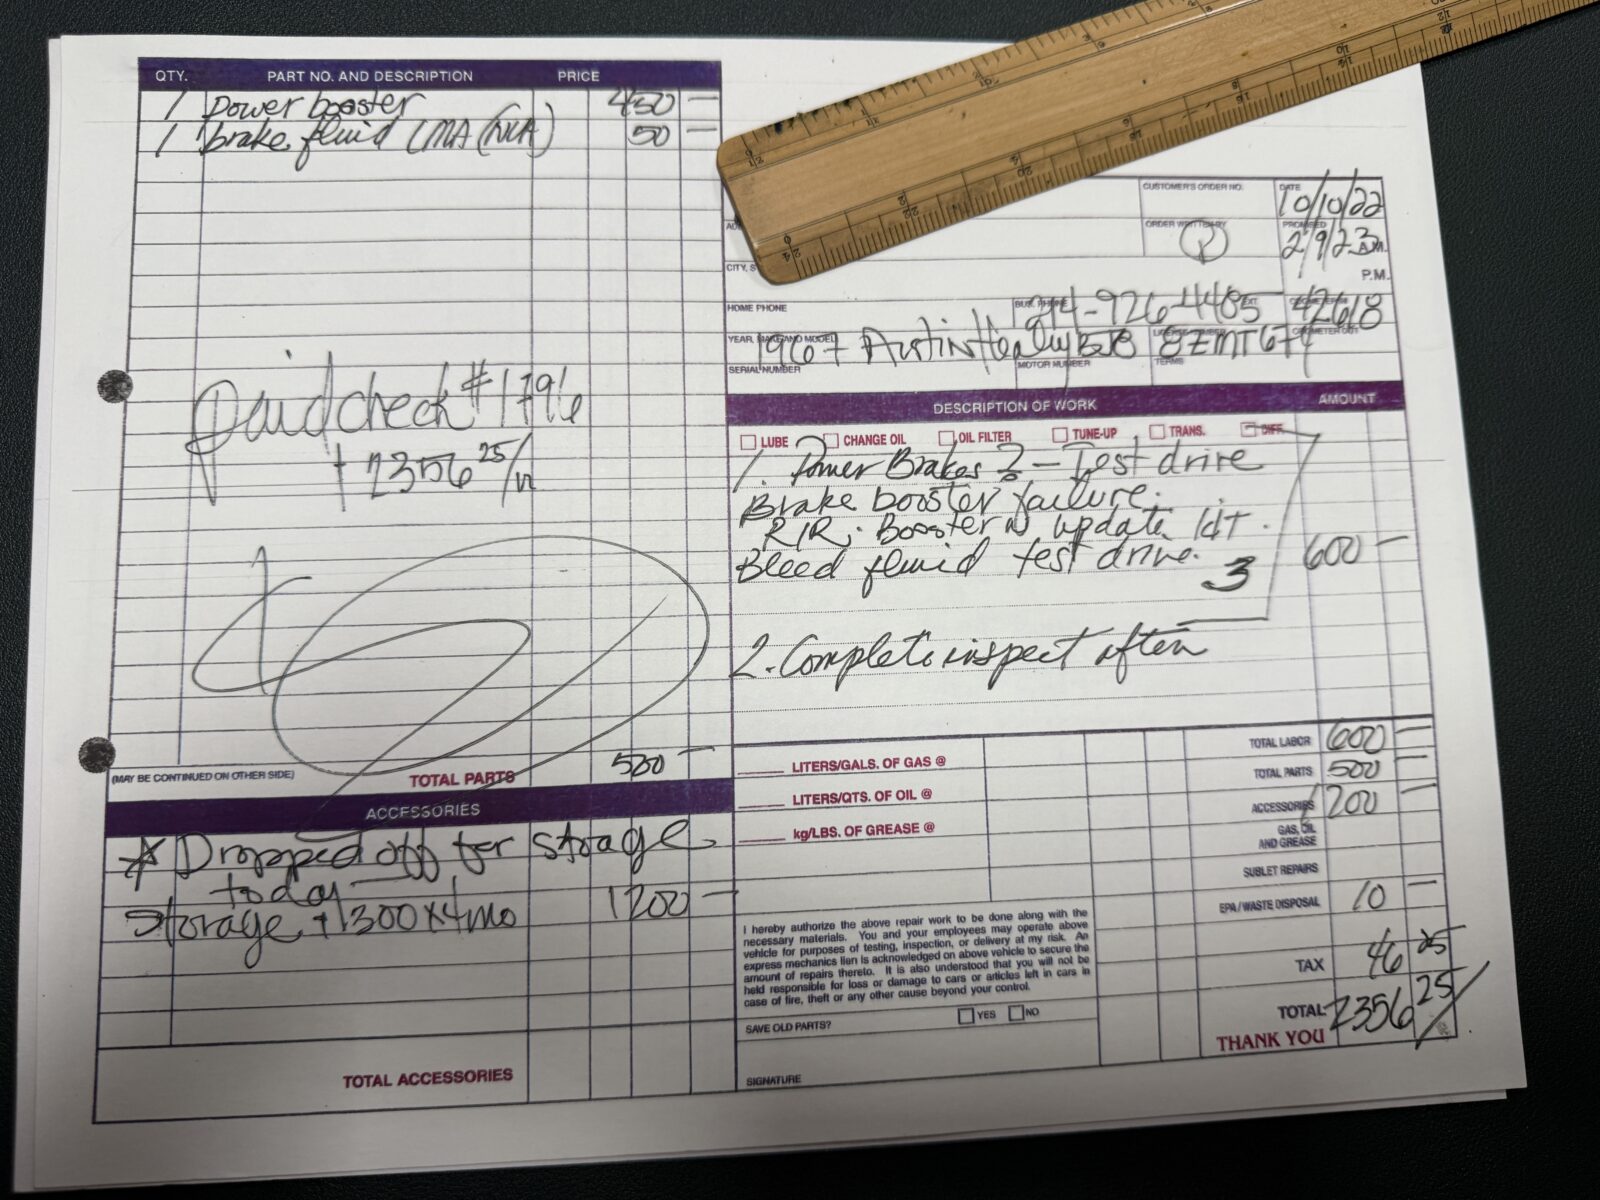 QTY. PART NO. AND DESCRIPTION PRICE
1 power booster 450 —
1 brake fluid LMA 50 —
paid check #1796
2356 25/
(MAY BE CONTINUED ON OTHER SIDE) TOTAL PARTS 500 —
ACCESSORIES
* Dropped off for storage
today
storage 300x4mo 1200 —
TOTAL ACCESSORIES
CUSTOMER'S ORDER NO. DATE 10/10/22
ORDER WRITTEN BY R PROMISED 2/9/23 A.M.
P.M.
CITY, S
HOME PHONE BUS. PHONE 214-926-4485 EXT. 42618
YEAR, MAKE AND MODEL 1967 Austin Healey BJ8 8ZMT674
SERIAL NUMBER MOTOR NUMBER TERMS
DESCRIPTION OF WORK AMOUNT
LUBE CHANGE OIL OIL FILTER TUNE-UP TRANS. DIFF.
1. Power Brakes ? — Test drive
Brake booster failure.
R/R. Booster update kit.
Bleed fluid test drive. 3 600 —
2. Complete inspect often
TOTAL LABOR 600 —
LITERS/GALS. OF GAS @ TOTAL PARTS 500 —
LITERS/QTS. OF OIL @ ACCESSORIES 1200 —
kg/LBS. OF GREASE @ GAS, OIL
AND GREASE
SUBLET REPAIRS
EPA / WASTE DISPOSAL 10 —
TAX 46 25
TOTAL 2356 25/
THANK YOU
I hereby authorize the above repair work to be done along with the
necessary materials. You and your employees may operate above
vehicle for purposes of testing, inspection, or delivery at my risk. An
express mechanics lien is acknowledged on above vehicle to secure the
amount of repairs thereto. It is also understood that you will not be
held responsible for loss or damage to cars or articles left in cars in
case of fire, theft or any other cause beyond your control.
SAVE OLD PARTS? YES NO
SIGNATURE